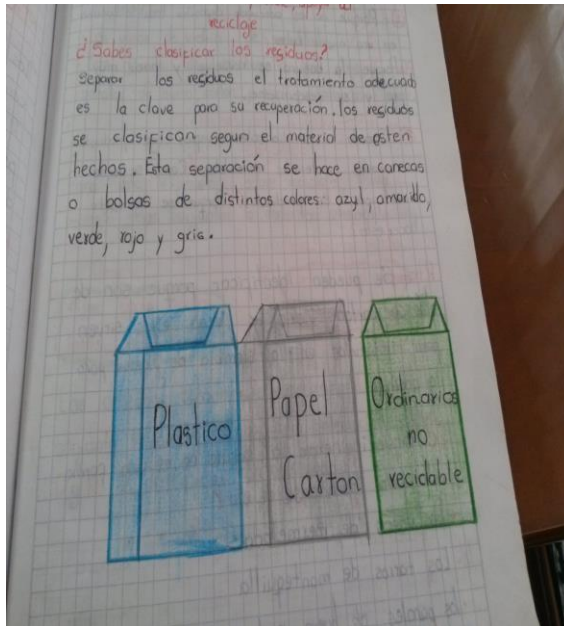 reciclaje
¿Sabes clasificar los residuos?
Separar los residuos el tratamiento adecuado
es la clave para su recuperación. los residuos
se clasifican segun el material de esten
hechos. Esta separación se hace en canecas
o bolsas de distintos colores: azyl, amarillo,
verde, rojo y gris.
Plastico
Papel
Carton
Ordinarios
no
reciclable